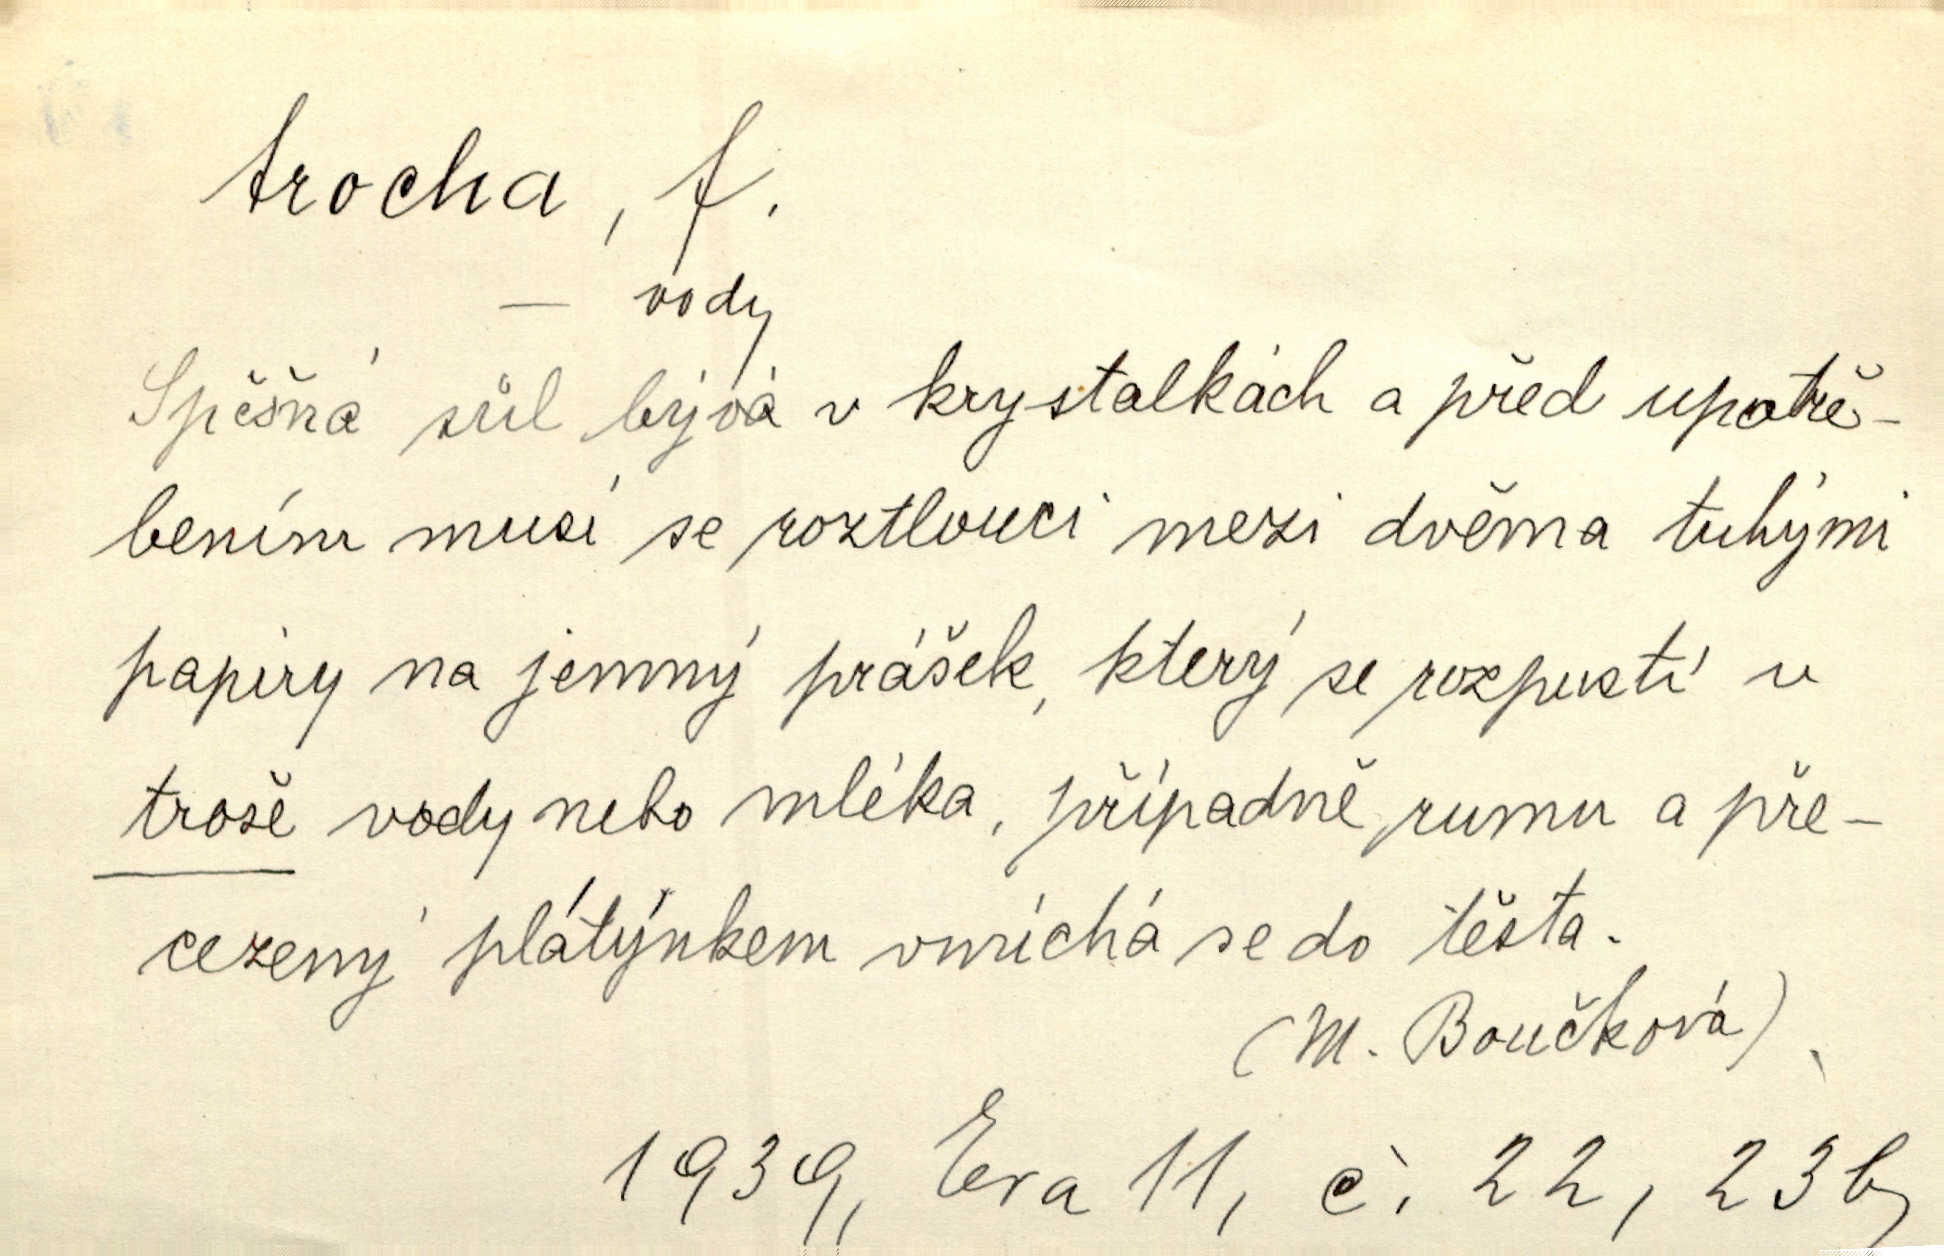 trocha, f.
— vody
Spěšná sůl bývá v krystalkách a před upotře-
bením musí se roztlouci mezi dvěma tuhými
papíry na jemný prášek, který se rozpustí v
troše vody nebo mléka, případně rumu a pře-
cezený plátýnkem vmíchá se do těsta.
(M. Boučková)
1939, Eva 11, č. 22, 23b